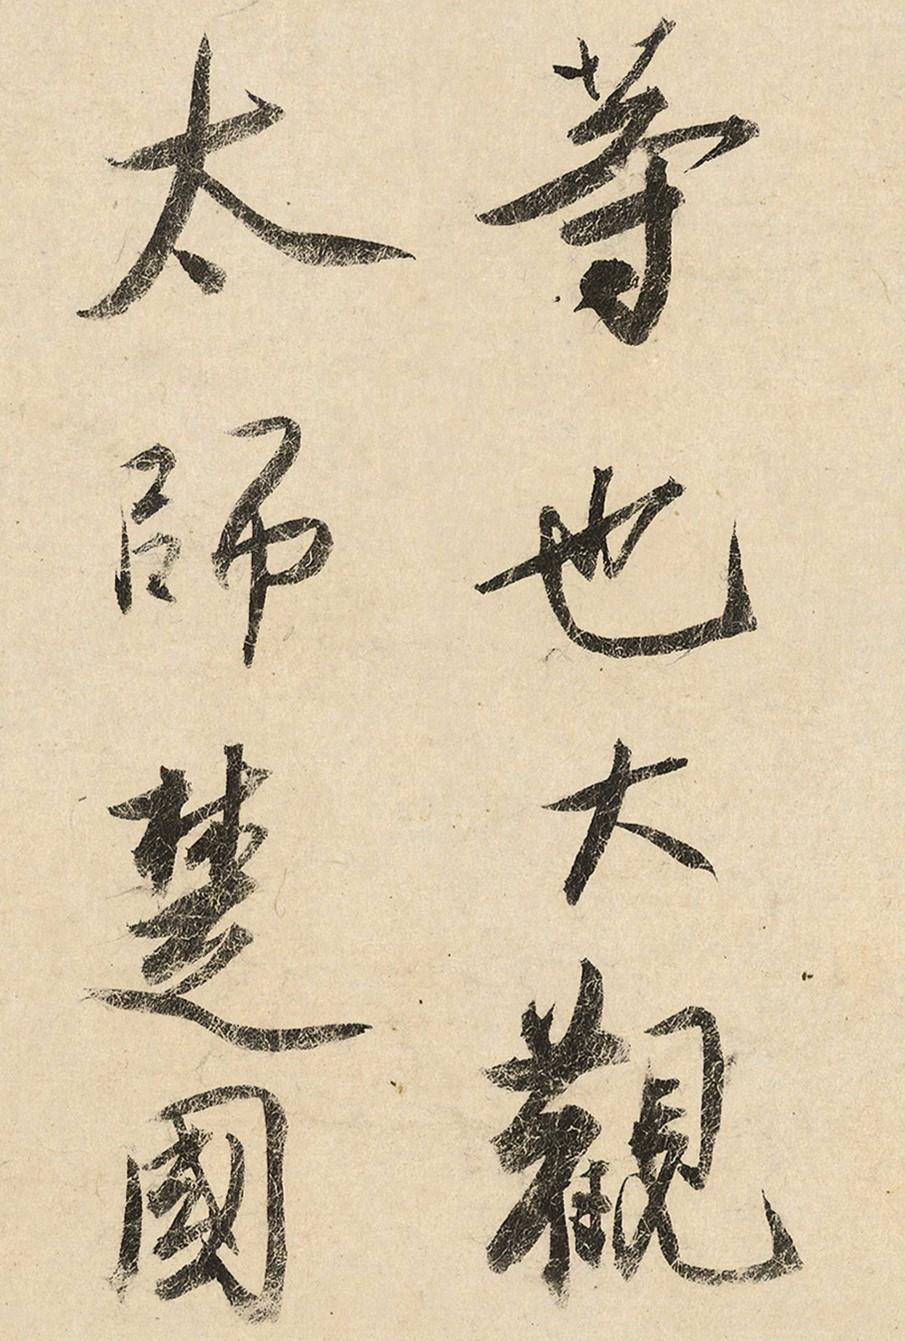 等也大觀
太師楚國